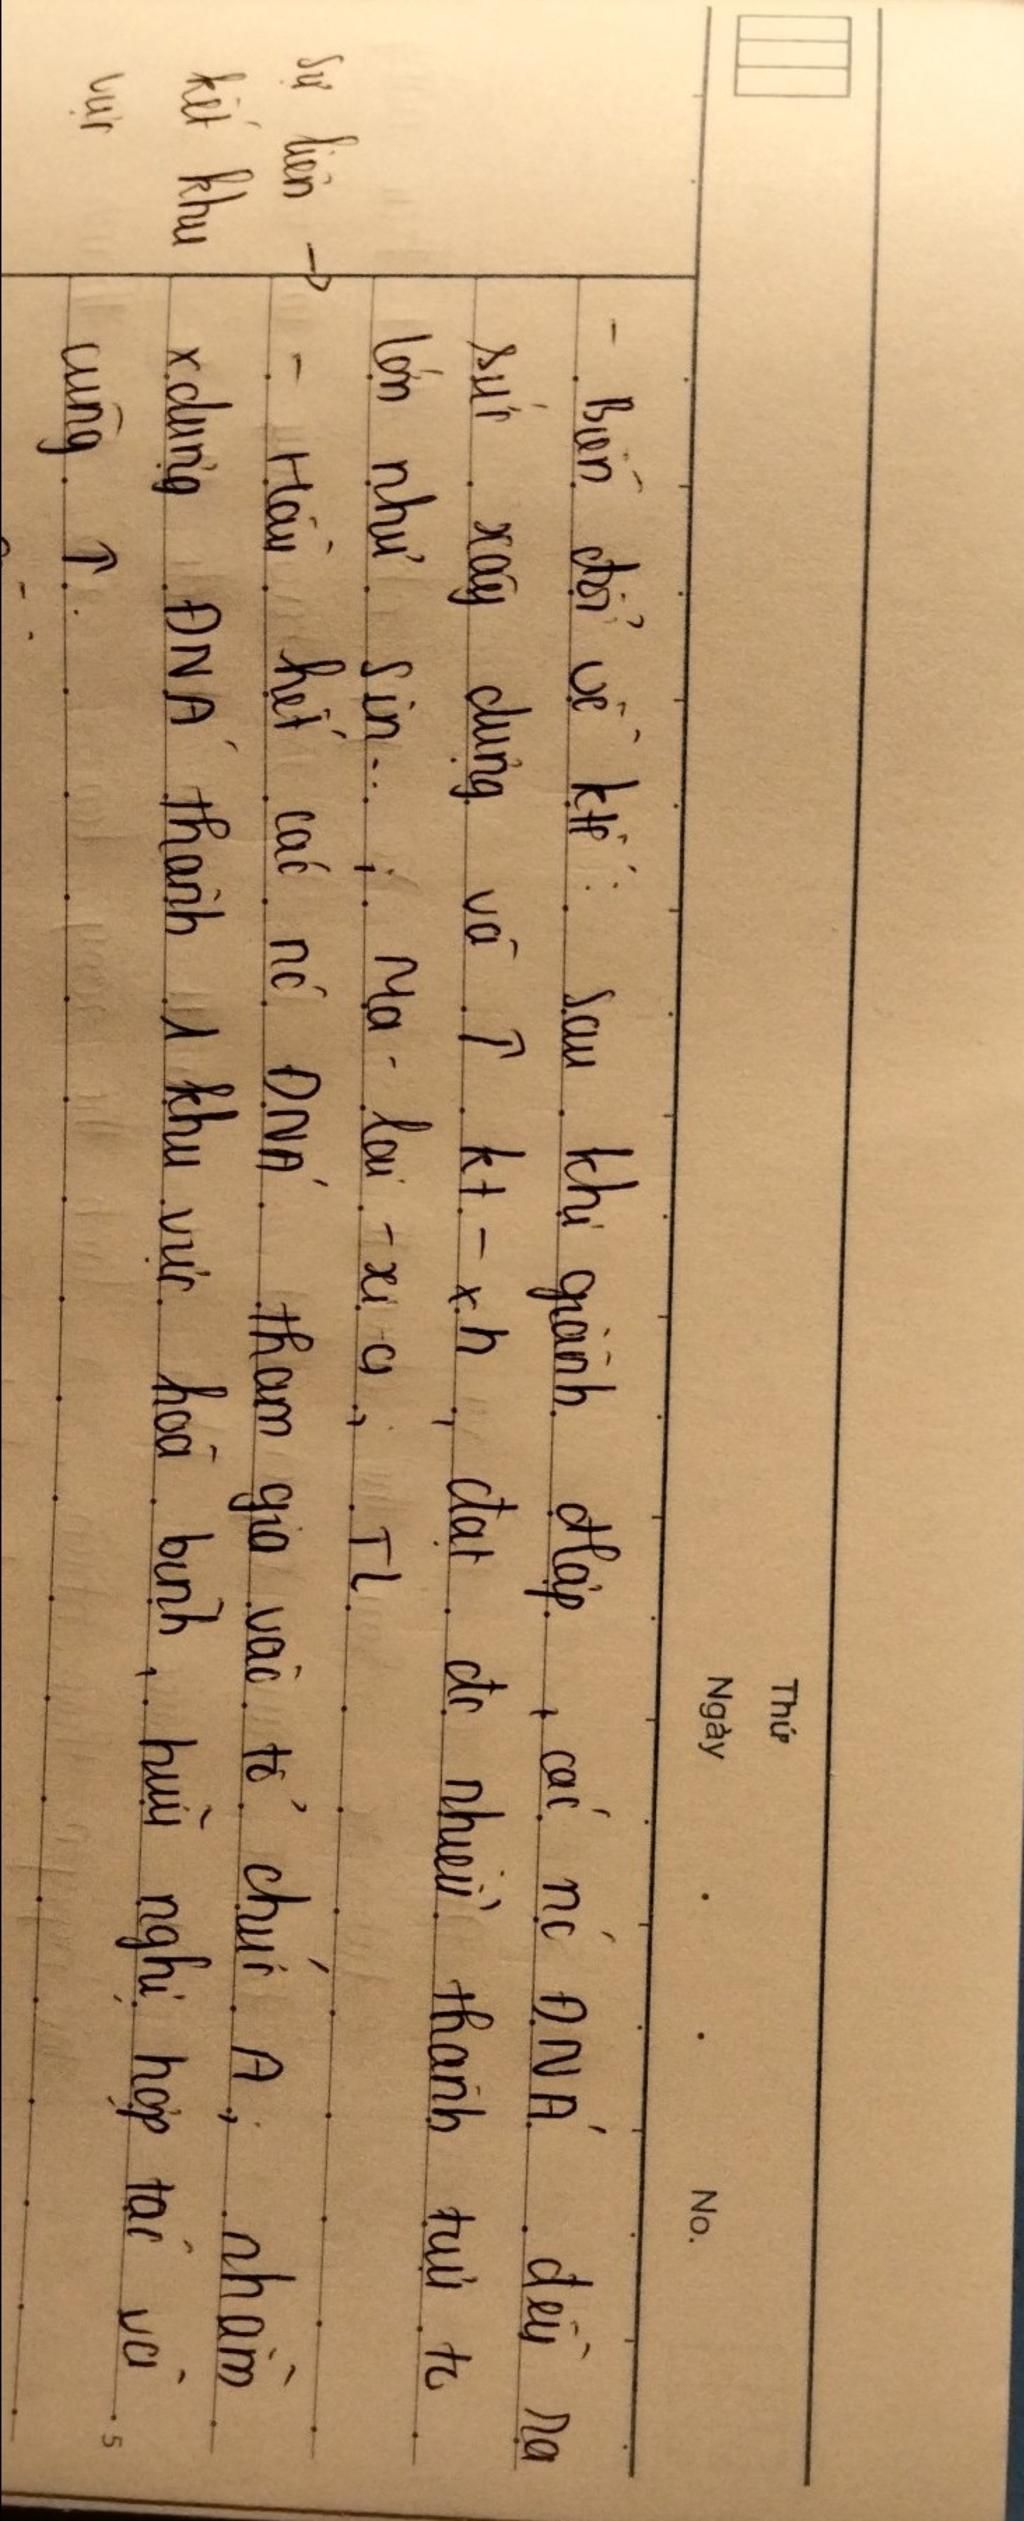 Thứ
Ngày . . No.
- Biến đổi về kt : Sau khi giành đlập , các nc ĐNÁ đều ra
sức xây dựng và ↑ kt - xh , đạt đc nhiều thành tựu to
lớn như Sin... , Ma - lai - xi a , TL
sự liên →
- Hầu hết các nc ĐNÁ tham gia vào tổ chức A , nhằm
kết khu
x.dựng ĐNÁ thành 1 khu vực hoà bình , hữu nghị hợp tác và
vực
cùng ↑ .
5